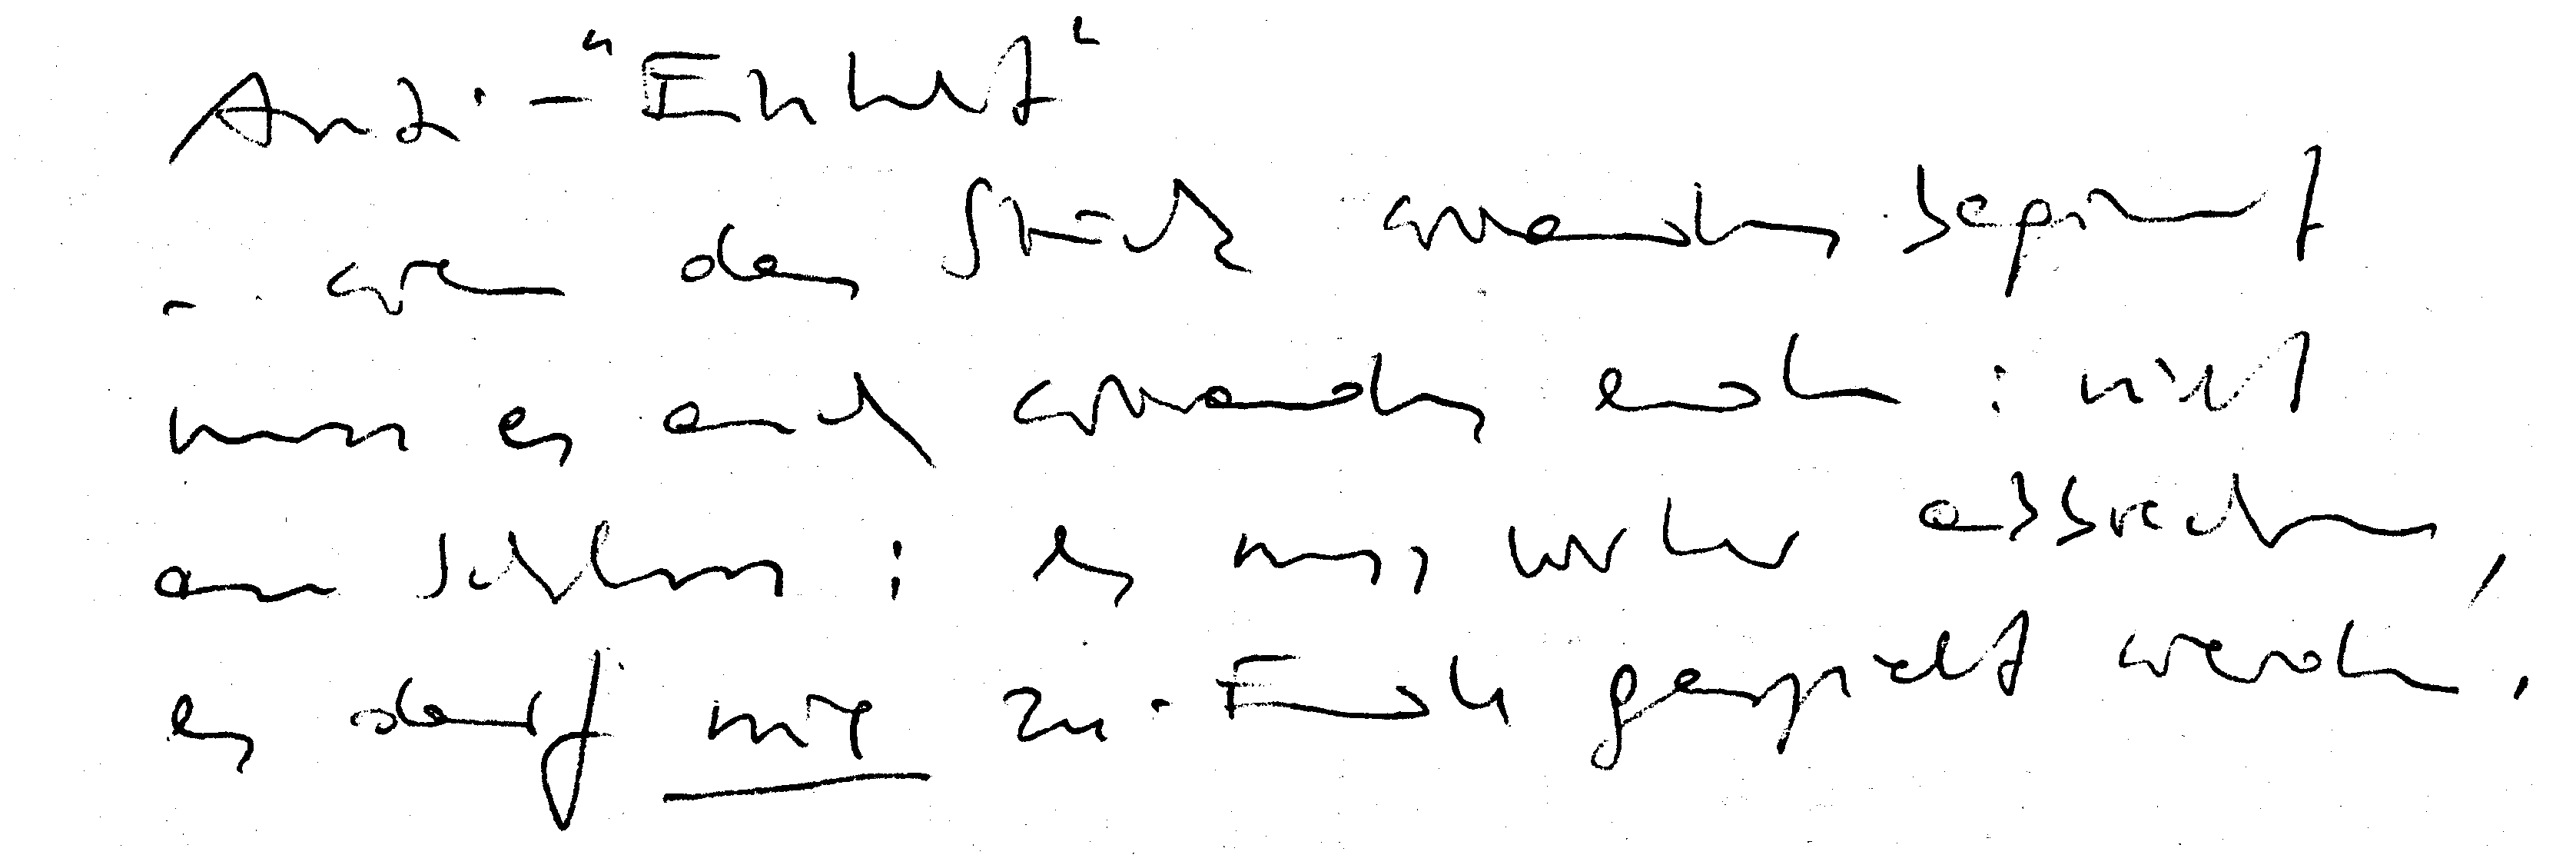 Anti-"Einheit"
- wenn das Stück irgendwo beginnt
muss es auch irgendwo enden : nicht
am Schluss : es muss wohl abbrechen,
es darf nie zu Ende gespielt werden.